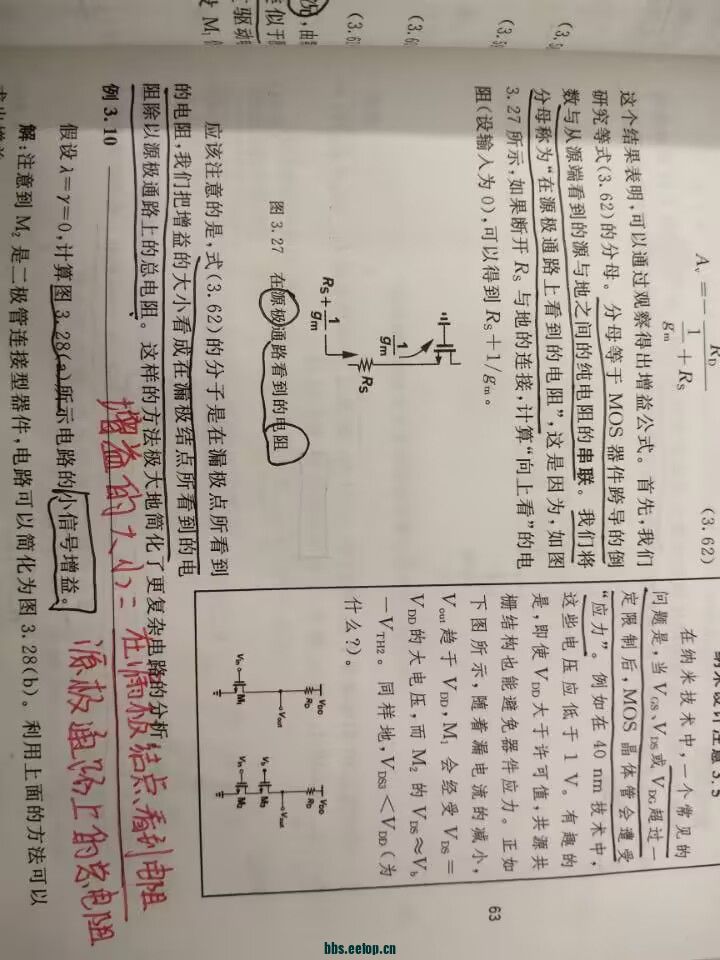 (3.61
(3.62)
这个结果表明,可以通过观察得出增益公式。首先,我们
研究等式(3.62)的分母。分母等于 MOS 器件跨导的倒
数与从源端看到的源与地之间的纯电阻的串联。我们将
分母称为“在源极通路上看到的电阻”,这是因为,如图
3.27 所示,如果断开 RS 与地的连接,计算“向上看”的电
阻(设输入为 0),可以得到 RS+1/gm。
1/gm
RS
RS+1/gm
图 3.27 在源极通路看到的电阻
应该注意的是,式(3.62)的分子是在漏极点所看到
的电阻,我们把增益的大小看成在漏极结点所看到的电
阻除以源极通路上的总电阻。这样的方法极大地简化了更复杂电路的分析。
增益的大小= 在漏极结点看到电阻
源极通路上的总电阻
例 3.10
假设 λ=γ=0,计算图 3.28(a)所示电路的小信号增益。
解:注意到 M2 是二极管连接型器件,电路可以简化为图 3.28(b)。利用上面的方法可以
在纳米技术中,一个常见的
问题是,当 VGS、VDS 或 VDG 超过一
定限制后,MOS 晶体管会遭受
“应力”。例如在 40 nm 技术中,
这些电压应低于 1 V。有趣的
是,即使 VDD 大于许可值,共源共
栅结构也能避免器件应力。正如
下图所示,随着漏电流的减小,
Vout 趋于 VDD,M1 会经受 VDS=
VDD 的大电压,而 M2 的 VDS≈Vb
−VTH2。同样地,VDS3<VDD(为
什么?)。
VDD
RD
Vout
Vin
M1
VDD
RD
Vout
Vb
M3
Vin
M2
63
bbs.eetop.cn